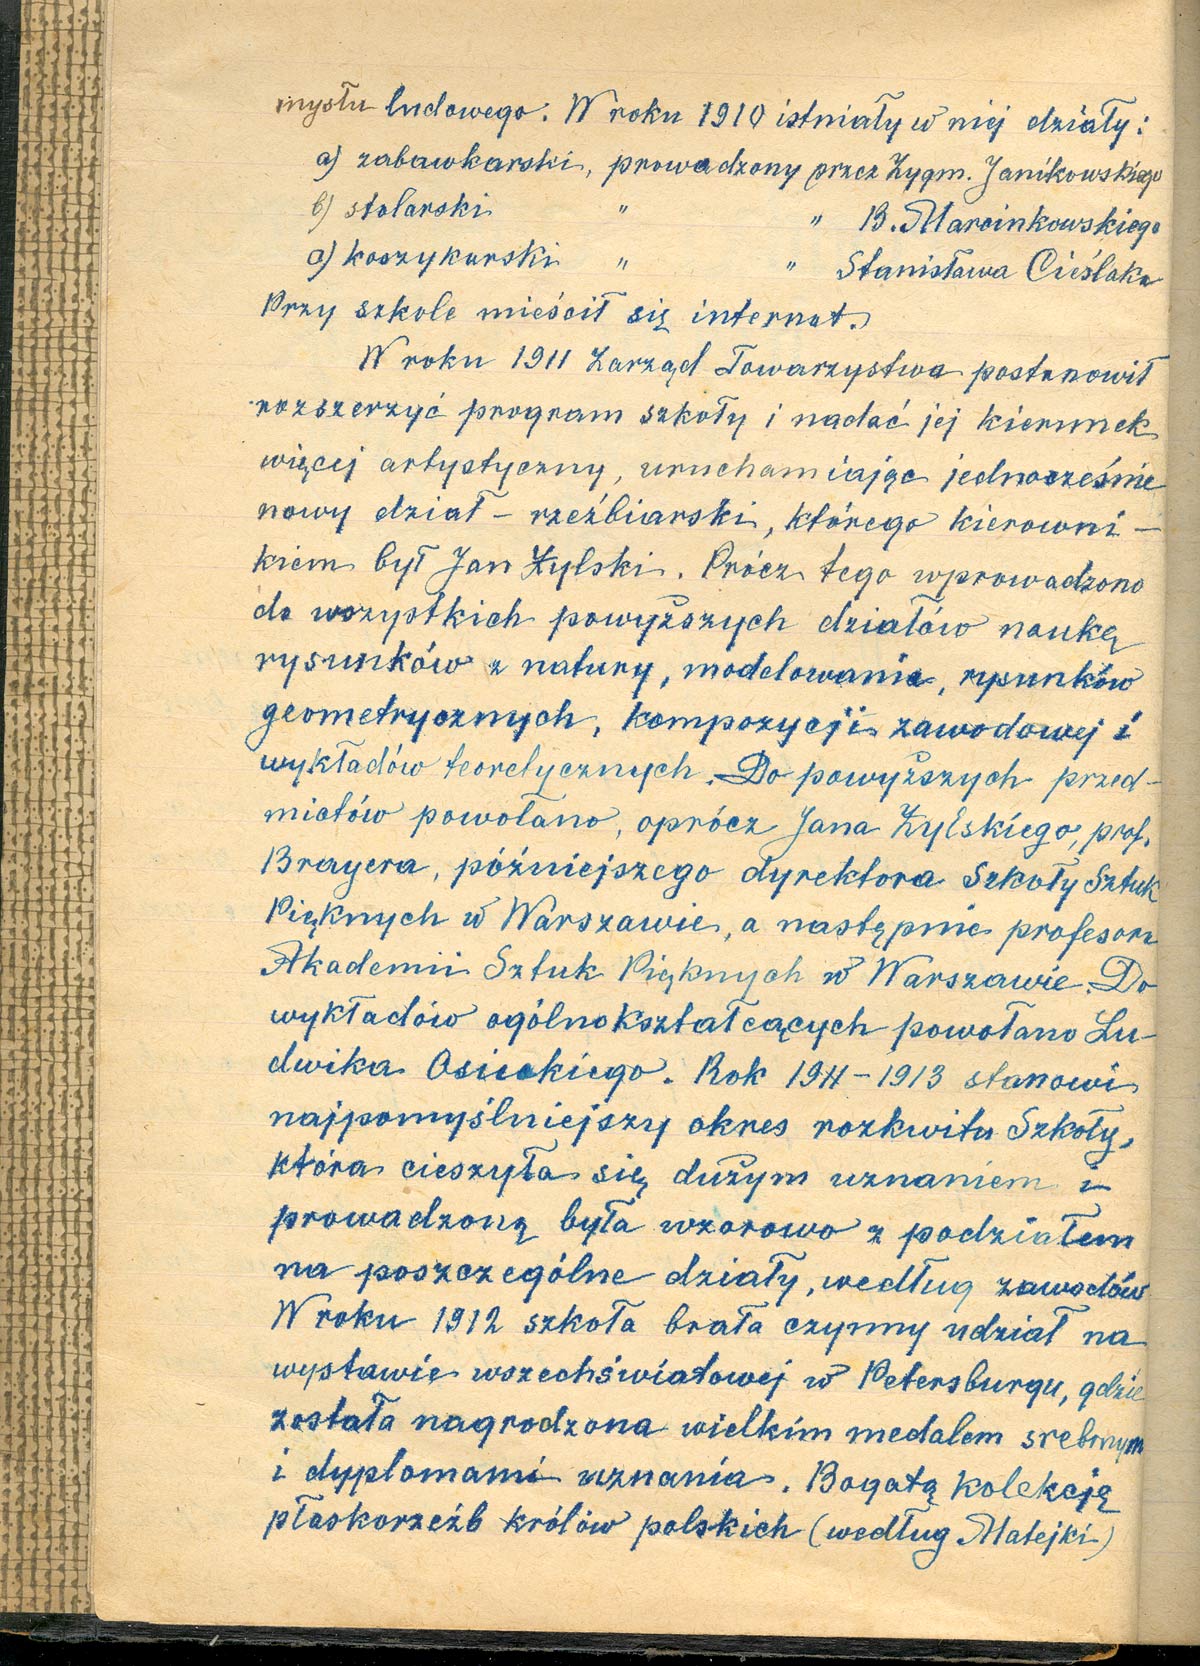 mysłu ludowego. W roku 1910 istniały w niej działy:
a) zabawkarski, prowadzony przez Zygm. Janikowskiego
b) stolarski " " B. Marcinkowskiego
c) koszykarski " " Stanisława Cieślaka
Przy szkole mieścił się internat.
W roku 1911 Zarząd Towarzystwa postanowił
rozszerzyć program szkoły i nadać jej kierunek
więcej artystyczny, uruchamiając jednocześnie
nowy dział – rzeźbiarski, którego kierowni-
kiem był Jan Żylski. Prócz tego wprowadzono
do wszystkich powyższych działów naukę
rysunków z natury, modelowania, rysunków
geometrycznych, kompozycji zawodowej i
wykładów teoretycznych. Do powyższych przed-
miotów powołano, oprócz Jana Żylskiego, prof.
Breyera, późniejszego dyrektora Szkoły Sztuk
Pięknych w Warszawie, a następnie profesora
Akademii Sztuk Pięknych w Warszawie. Do
wykładów ogólnokształcących powołano Lu-
dwika Osieckiego. Rok 1911–1913 stanowi
najpomyślniejszy okres rozkwitu Szkoły,
która cieszyła się dużym uznaniem i
prowadzoną była wzorowo z podziałem
na poszczególne działy, według zawodów
W roku 1912 szkoła brała czynny udział na
wystawie wszechświatowej w Petersburgu, gdzie
została nagrodzona wielkim medalem srebrnym
i dyplomami uznania. Bogatą kolekcję
płaskorzeźb królów polskich (według Matejki)